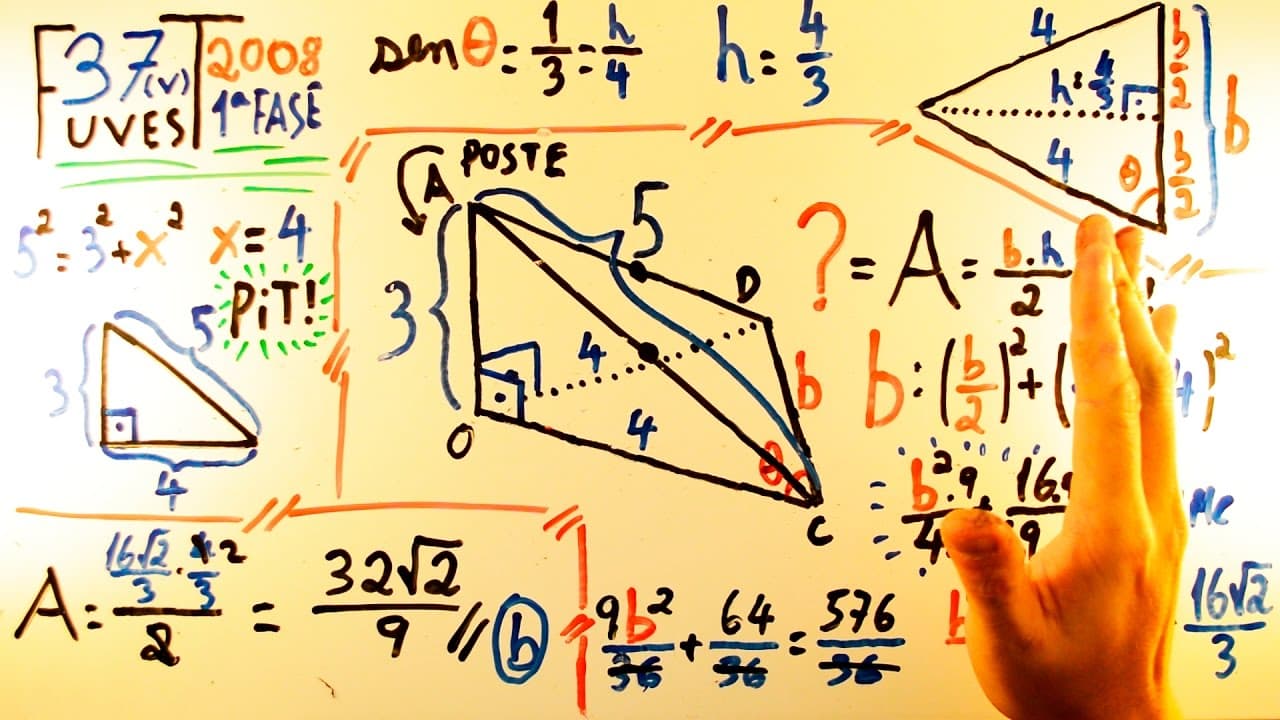 37(V) 2008
UVEST 1ª FASE
senθ = 1/3 = h/4
h = 4/3
4
h: 4/3
4
θ
b/2
b/2
b
5² = 3² + x² x = 4
PiT!
3
5
4
A POSTE
5
3
D
4
O
4
θ
b
C
? = A = b.h/2
b: (b/2)² + (
)²
b².9/4
16.
9
A = 16√2/3 . 4/3
2
= 32√2/9 // b
9b²/36 + 64/36 = 576/36
b
16√2/3